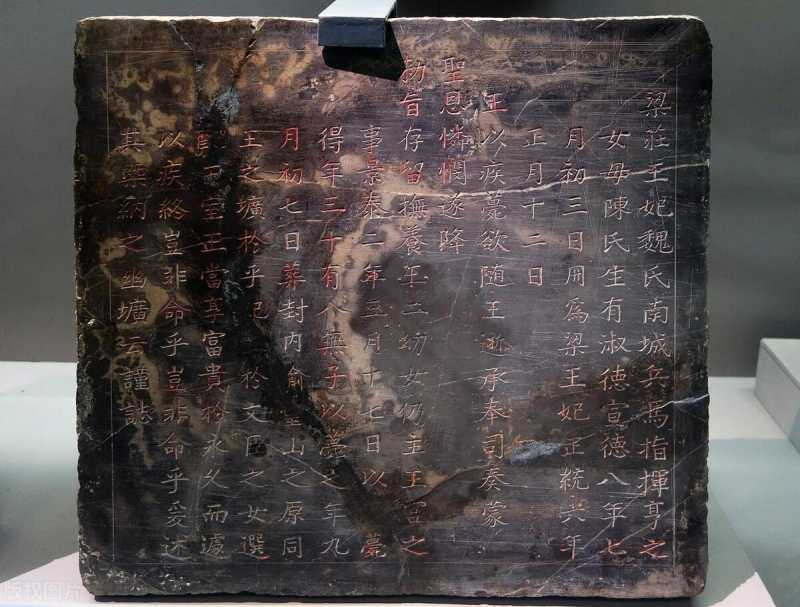 梁莊王妃魏氏南城兵馬指揮亨之
女母陳氏生有淑德宣德八年七
月初三日冊爲梁王妃正統六年
正月十二日
王以疾薨欲隨王逝承奉司奏蒙
聖恩憐憫遂降
勑旨存留撫養王二幼女仍主王宮之
事景泰二年三月十七日以 薨
得年三十有八無子以薨之年九
月初七日葬封內 山之原同
王之壙於乎妃 於文臣之女選
王室正當享富貴於永久而遽
以疾終豈非命乎豈非命乎爰述
其槩納之幽壙云謹誌
版权图片